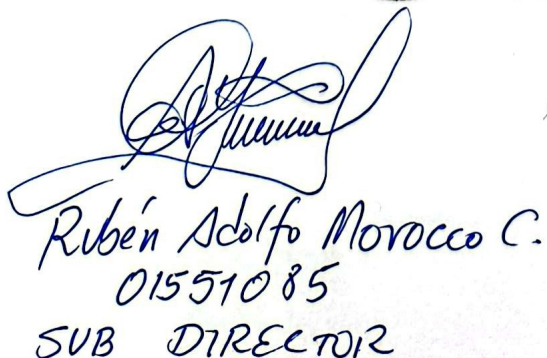 Rubén Adolfo Morocco C.
01551085
SUB DIRECTOR